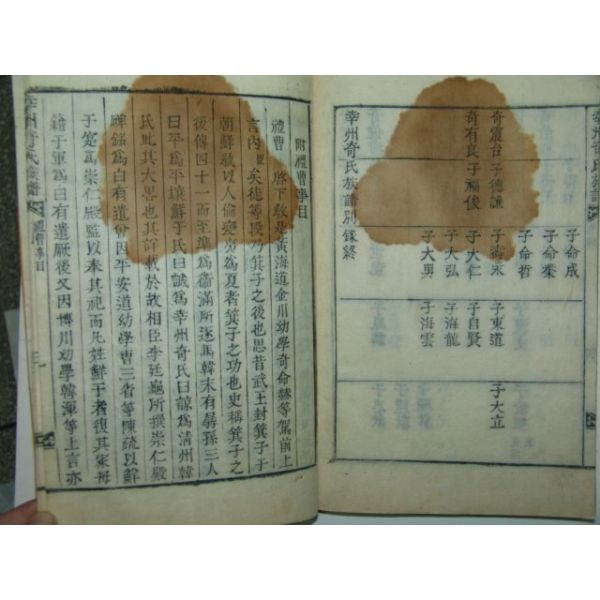 幸州奇氏族譜
奇震台子德謙
奇有良子福俊
子命成
子命哲
子大仁
子大弘
子大勇
子東道
子自賢
子海龍
子海雲
子大立
幸州奇氏族譜別錄終
附禮曹事目
禮曹 啓下敎是黃海道金川幼學奇命赫等駕前上
言內矣徒等段乃箕子之後也思昔武王封箕子于
朝鮮敎以人倫變夷爲夏者箕子之功也史稱箕子之
後傳四十一而至準爲衛滿所逐馬韓末有孱孫三人
曰平爲平壤鮮于氏曰誠爲幸州奇氏曰諒爲清州韓
氏此其大畧也其詳載於故相臣李廷龜所撰崇仁殿
碑銘爲白有遣曾因平安道幼學曹三省等陳疏以鮮
于寔爲崇仁殿監以奉其祀而凡姓鮮于者復其家毋
籍于軍爲白有遣厥後又因博川幼學韓渾等上言亦
幸州奇氏族譜 禮曹事目